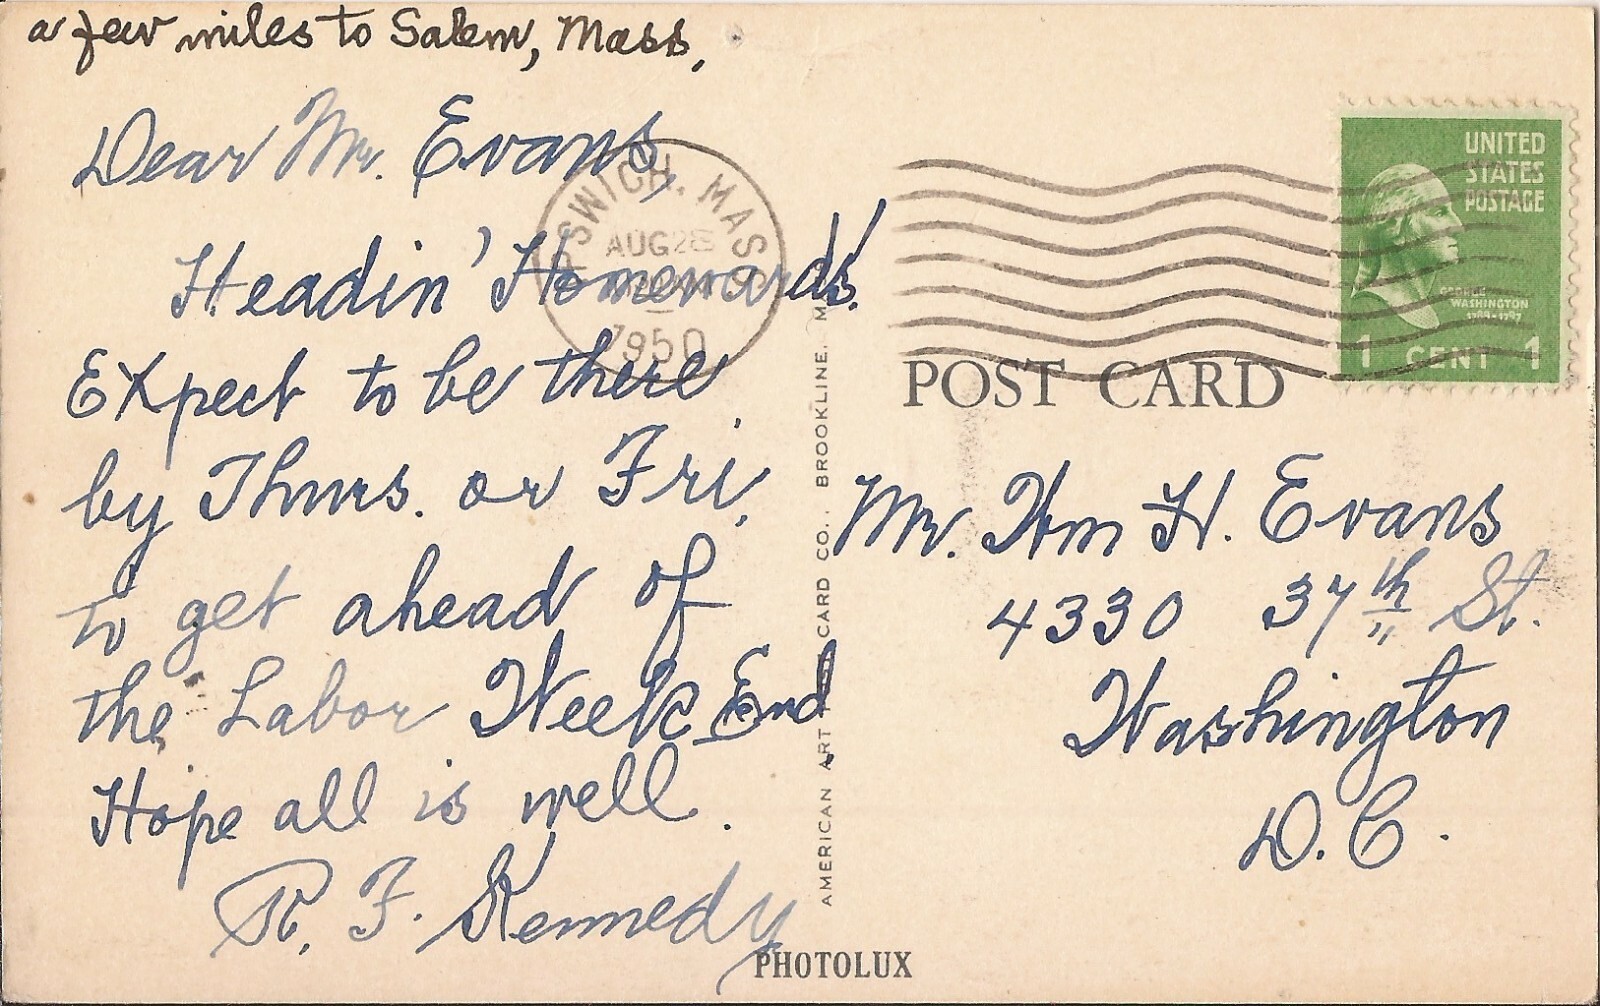 a few miles to Salem, Mass,
Dear Mr. Evans,
Headin' Homewards!
Expect to be there
by Thurs. or Fri.
to get ahead of
the Labor Week End
Hope all is well.
R. F. Kennedy
IPSWICH, MASS
AUG 28
1950
AMERICAN ART POST CARD CO., BROOKLINE, MASS
UNITED
STATES
POSTAGE
GEORGE
WASHINGTON
1789-1797
1 CENT 1
POST CARD
Mr. Wm H. Evans
4330 37th St.
Washington
D.C.
PHOTOLUX